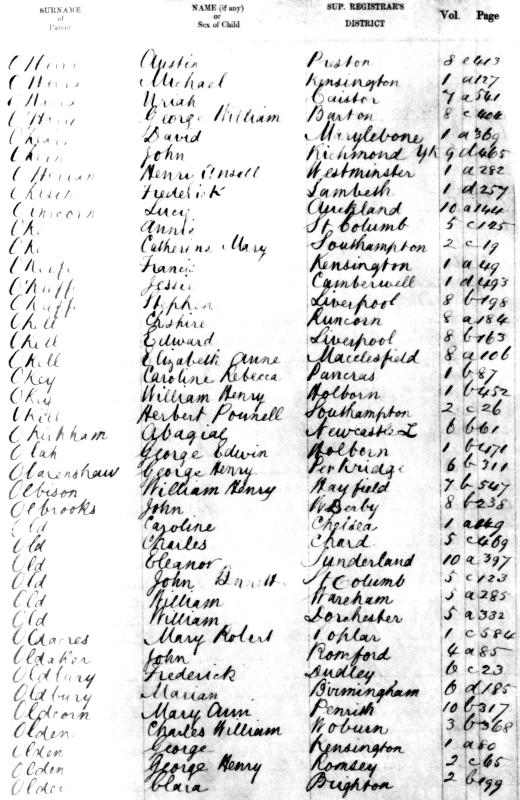 SURNAME of Parent NAME (if any) or Sex of Child SUP. REGISTRAR'S DISTRICT Vol. Page
Austin Preston 8 e 413
Michael Kensington 1 a 127
Uriah Caistor 7 a 541
George William Barton 8 c 404
David Marylebone 1 a 369
John Richmond Yk 9 d 465
Henri Ansell Westminster 1 a 282
Frederick Lambeth 1 d 257
Lucy Auckland 10 a 144
Oke Annie St Columb 5 c 125
Oke Catherine Mary Southampton 2 c 19
O'Keefe Francis Kensington 1 a 49
Jessie Camberwell 1 d 493
Stephen Liverpool 8 b 198
Okell Cheshire Runcorn 8 a 184
Okell Edward Liverpool 8 b 163
Okell Elizabeth Anne Macclesfield 8 a 106
Okey Caroline Rebecca Pancras 1 b 87
Okey William Henry Holborn 1 b 452
Okell Herbert Pounell Southampton 2 c 26
Okirkham Abagial Newcastle L 6 b 61
Olah George Edwin Holborn 1 b 471
Olarenshaw George Henry 6 b 311
Olbison William Henry Hayfield 7 b 547
Olbrooks John W Derby 8 b 235
Old Caroline Chelsea 1 a 149
Old Charles Chard 5 c 469
Old Eleanor Sunderland 10 a 397
Old John Bennett St Columb 5 c 123
Old William Wareham 5 a 285
Old William Dorchester 5 a 332
Oldacres Mary Robert Poplar 1 c 584
Oldaker John Romford 4 a 85
Oldbury Frederick Dudley 6 c 23
Oldbury Marian Birmingham 6 d 185
Oldcorn Mary Ann Penrith 10 b 317
Olden Charles William Woburn 3 b 368
Olden George Kensington 1 a 80
Olden George Henry Romsey 2 c 65
Older Clara Brighton 2 b 199